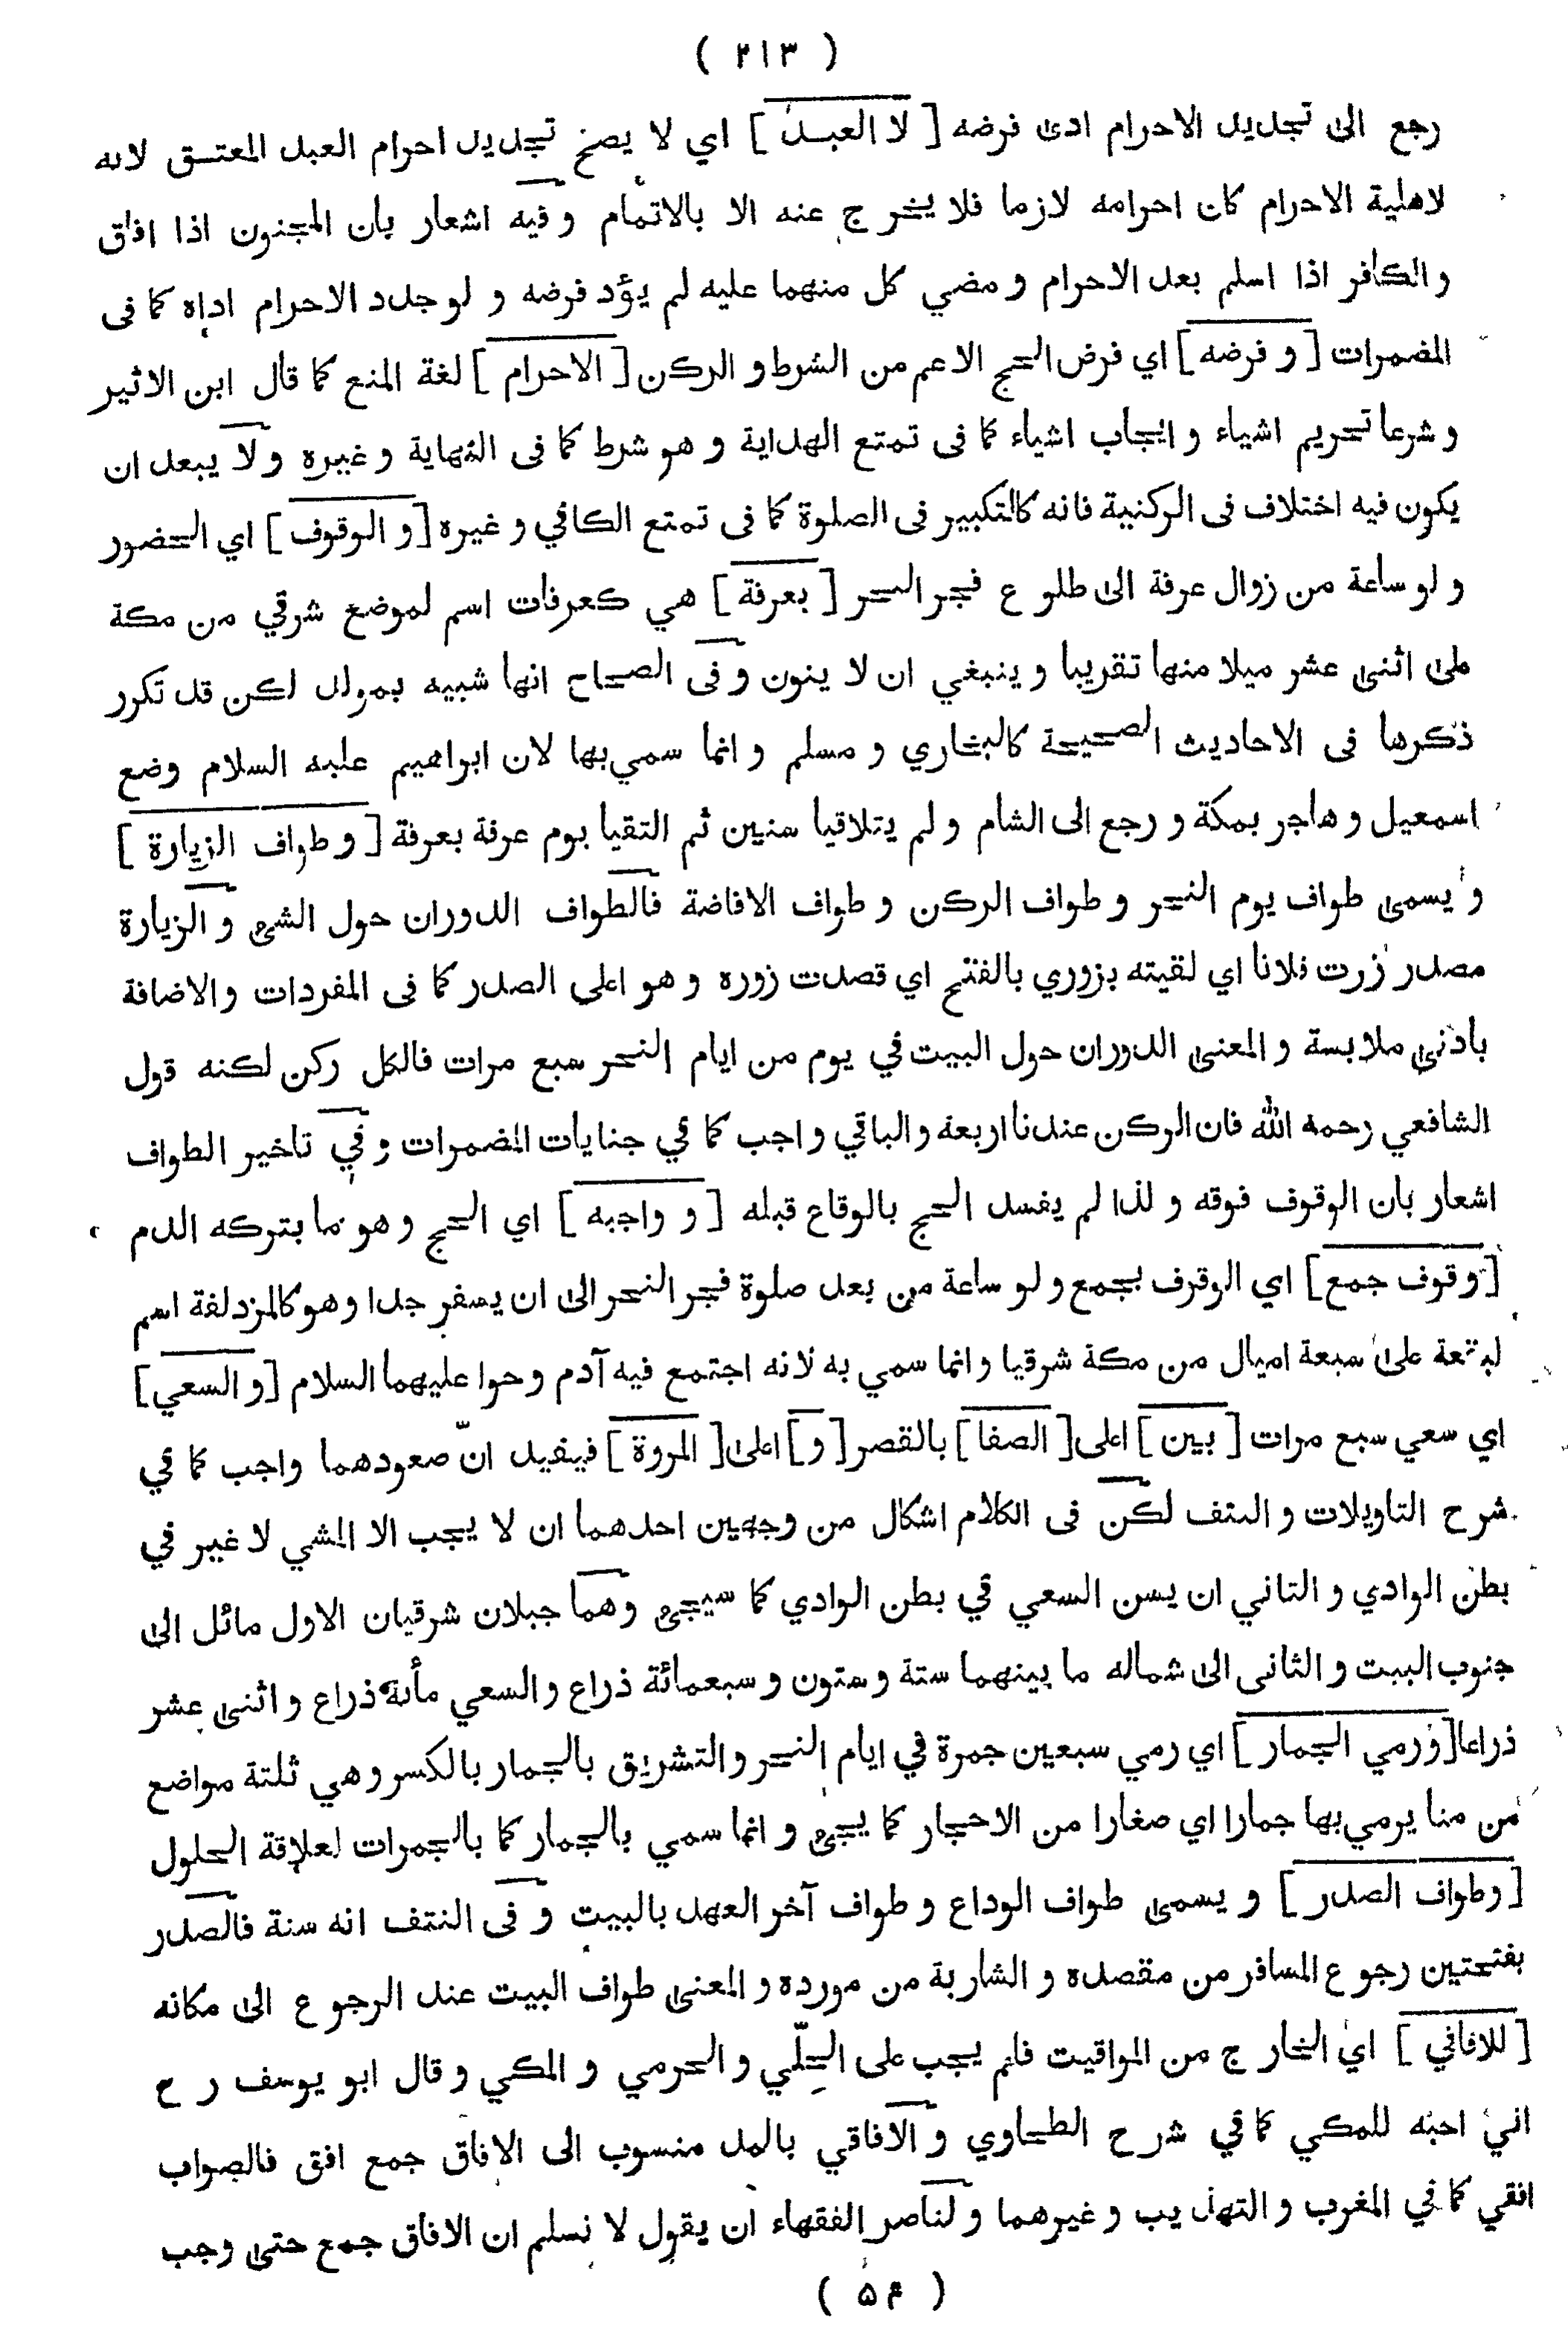 ( ٢١٣ )
رجع الى تجديد الاحرام ادى فرضه [ لا العبد ] اي لا يصح تجديد احرام العبد المعتق لانه
لاهلية الاحرام كان احرامه لازما فلا يخرج عنه الا بالاتمام وفيه اشعار بان المجنون اذا افاق
والكافر اذا اسلم بعد الاحرام ومضي كل منهما عليه لم يؤد فرضه و لو جدد الاحرام اداه كما فى
المضمرات [ و فرضه ] اي فرض الحج الاعم من الشرط و الركن [ الاحرام ] لغة المنع كما قال ابن الاثير
و شرعا تحريم اشياء و ايجاب اشياء كما فى تمتع الهداية و هو شرط كما فى النهاية و غيره و لا يبعد ان
يكون فيه اختلاف فى الركنية فانه كالتكبير فى الصلوة كما فى تمتع الكافي و غيره [ و الوقوف ] اي الحضور
و لو ساعة من زوال عرفة الى طلوع فجر النحر [ بعرفة ] هي كعرفات اسم لموضع شرقي من مكة
على اثنى عشر ميلا منها تقريبا و ينبغي ان لا ينون و فى الصحاح انها شبيه بمولد لكن قد تكرر
ذكرها فى الاحاديث الصحيحة كالبخاري و مسلم و انما سمي بها لان ابراهيم عليه السلام وضع
اسمعيل و هاجر بمكة و رجع الى الشام و لم يتلاقيا سنين ثم التقيا يوم عرفة بعرفة [ و طواف الزيارة ]
و يسمى طواف يوم النحر و طواف الركن و طواف الافاضة فالطواف الدوران حول الشئ و الزيارة
مصدر زرت فلانا اي لقيته بزوري بالفتح اي قصدت زوره و هو اعلى الصدر كما فى المفردات والاضافة
بادنى ملابسة و المعنى الدوران حول البيت في يوم من ايام النحر سبع مرات فالكل ركن لكنه قول
الشافعي رحمه الله فان الركن عندنا اربعة والباقي واجب كما في جنايات المضمرات و في تاخير الطواف
اشعار بان الوقوف فوقه و لذا لم يفسد الحج بالوقاع قبله [ و واجبه ] اي الحج و هو ما بتركه الدم
[ وقوف جمع ] اي الوقوف بجمع و لو ساعة من بعد صلوة فجر النحر الى ان يسفر جدا وهو كالمزدلفة اسم
لبقعة على سبعة اميال من مكة شرقيا وانما سمي به لانه اجتمع فيه آدم و حوا عليهما السلام [ و السعي ]
اي سعي سبع مرات [ بين ] اعلى [ الصفا ] بالقصر [ و ] اعلى [ المروة ] فيفيد انّ صعودهما واجب كما في
شرح التاويلات و النتف لكن فى الكلام اشكال من وجهين احدهما ان لا يجب الا المشي لا غير في
بطن الوادي و الثاني ان يسن السعي في بطن الوادي كما سيجئ وهما جبلان شرقيان الاول مائل الى
جنوب البيت و الثانى الى شماله ما بينهما ستة و ستون و سبعمائة ذراع و السعي مأنة ذراع و اثنى عشر
ذراعا [ ورمي الجمار ] اي رمي سبعين جمرة في ايام النحر و التشريق بالجمار بالكسر وهي ثلثة مواضع
من منا يرمي بها جمارا اي صغارا من الاحجار كما يجئ و انما سمي بالجمار كما بالجمرات لعلاقة الحلول
[ وطواف الصدر ] و يسمى طواف الوداع و طواف آخر العهد بالبيت و فى النتف انه سنة فالصدر
بفتحتين رجوع المسافر من مقصده و الشاربة من مورده و المعنى طواف البيت عند الرجوع الى مكانه
[ للافاقي ] اي الخارج من المواقيت فلم يجب على الحِلّي و الحرمي و المكي و قال ابو يوسف ر ح
اني احبه للمكي كما في شرح الطحاوي و الآفاقي بالمد منسوب الى الافاق جمع افق فالصواب
افقي كما في المغرب و التهذيب و غيرهما و لناصر الفقهاء ان يقول لا نسلم ان الافاق جمع حتى وجب
( ٥٤ )